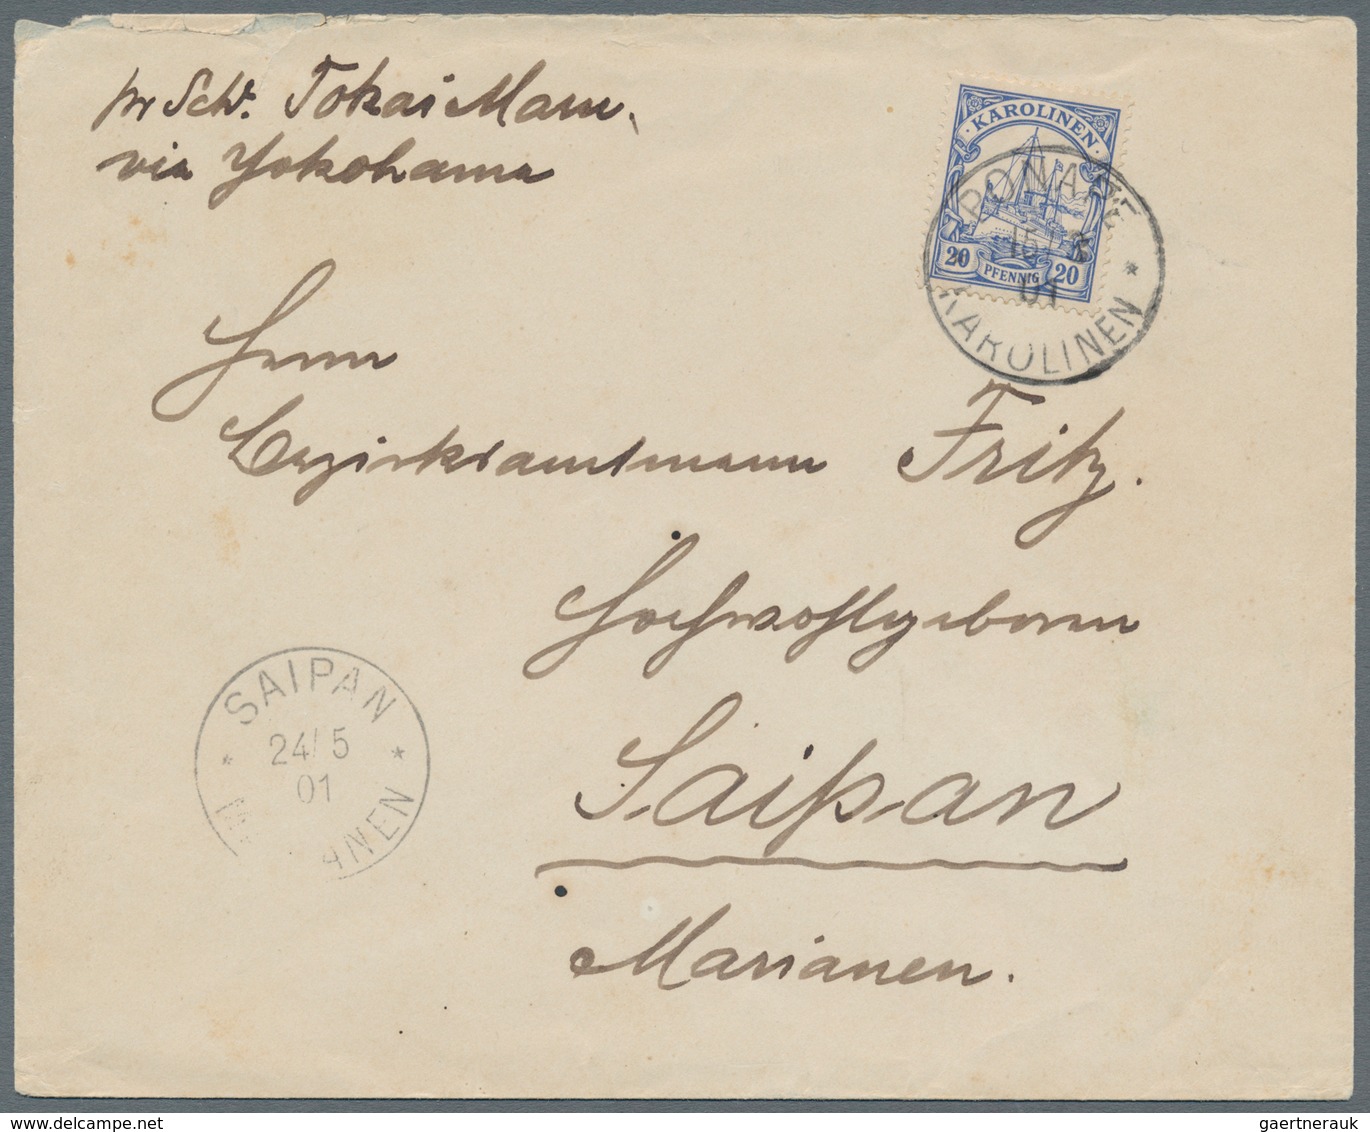 pr Schr. Tokai Maru
via Yokohama
KAROLINEN
20 PFENNIG 20
PONAPE
01
KAROLINEN
Herrn
Bezirksamtmann Fritz.
Hochwohlgeboren
Saipan
Marianen.
SAIPAN
24/5
01
gaertnerauk @ delcampe.net